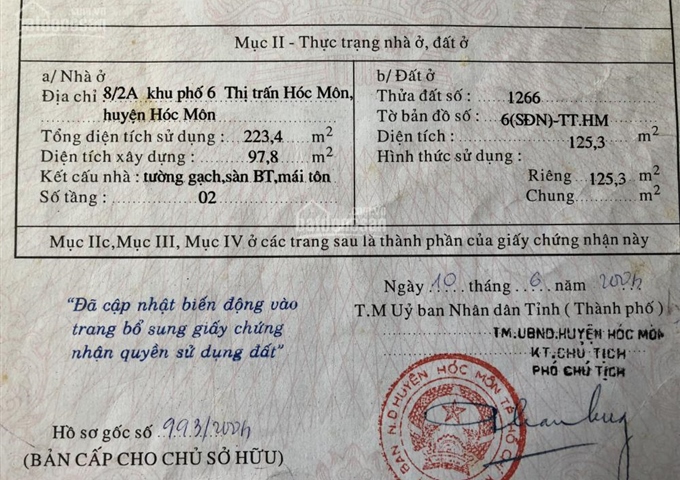 Mục II - Thực trạng nhà ở, đất ở
a/ Nhà ở
Địa chỉ 8/2A khu phố 6 Thị trấn Hóc Môn,
huyện Hóc Môn
Tổng diện tích sử dụng : 223,4 m2
Diện tích xây dựng : 97,8 m2
Kết cấu nhà : tường gạch,sàn BT,mái tôn
Số tầng : 02
b/ Đất ở
Thửa đất số : 1266
Tờ bản đồ số : 6(SĐN)-TT.HM
Diện tích : 125,3 m2
Hình thức sử dụng :
Riêng : 125,3 m2
Chung m2
Mục IIc,Mục III, Mục IV ở các trang sau là thành phần của giấy chứng nhận này
Ngày 10 tháng 6 năm 2004
T.M Uỷ ban Nhân dân Tỉnh ( Thành phố )
TM.UBND.HUYỆN HÓC MÔN
KT.CHỦ TỊCH
PHÓ CHỦ TỊCH
"Đã cập nhật biến động vào
trang bổ sung giấy chứng
nhận quyền sử dụng đất"
Hồ sơ gốc số 993/2004
(BẢN CẤP CHO CHỦ SỞ HỮU)
batdongsan